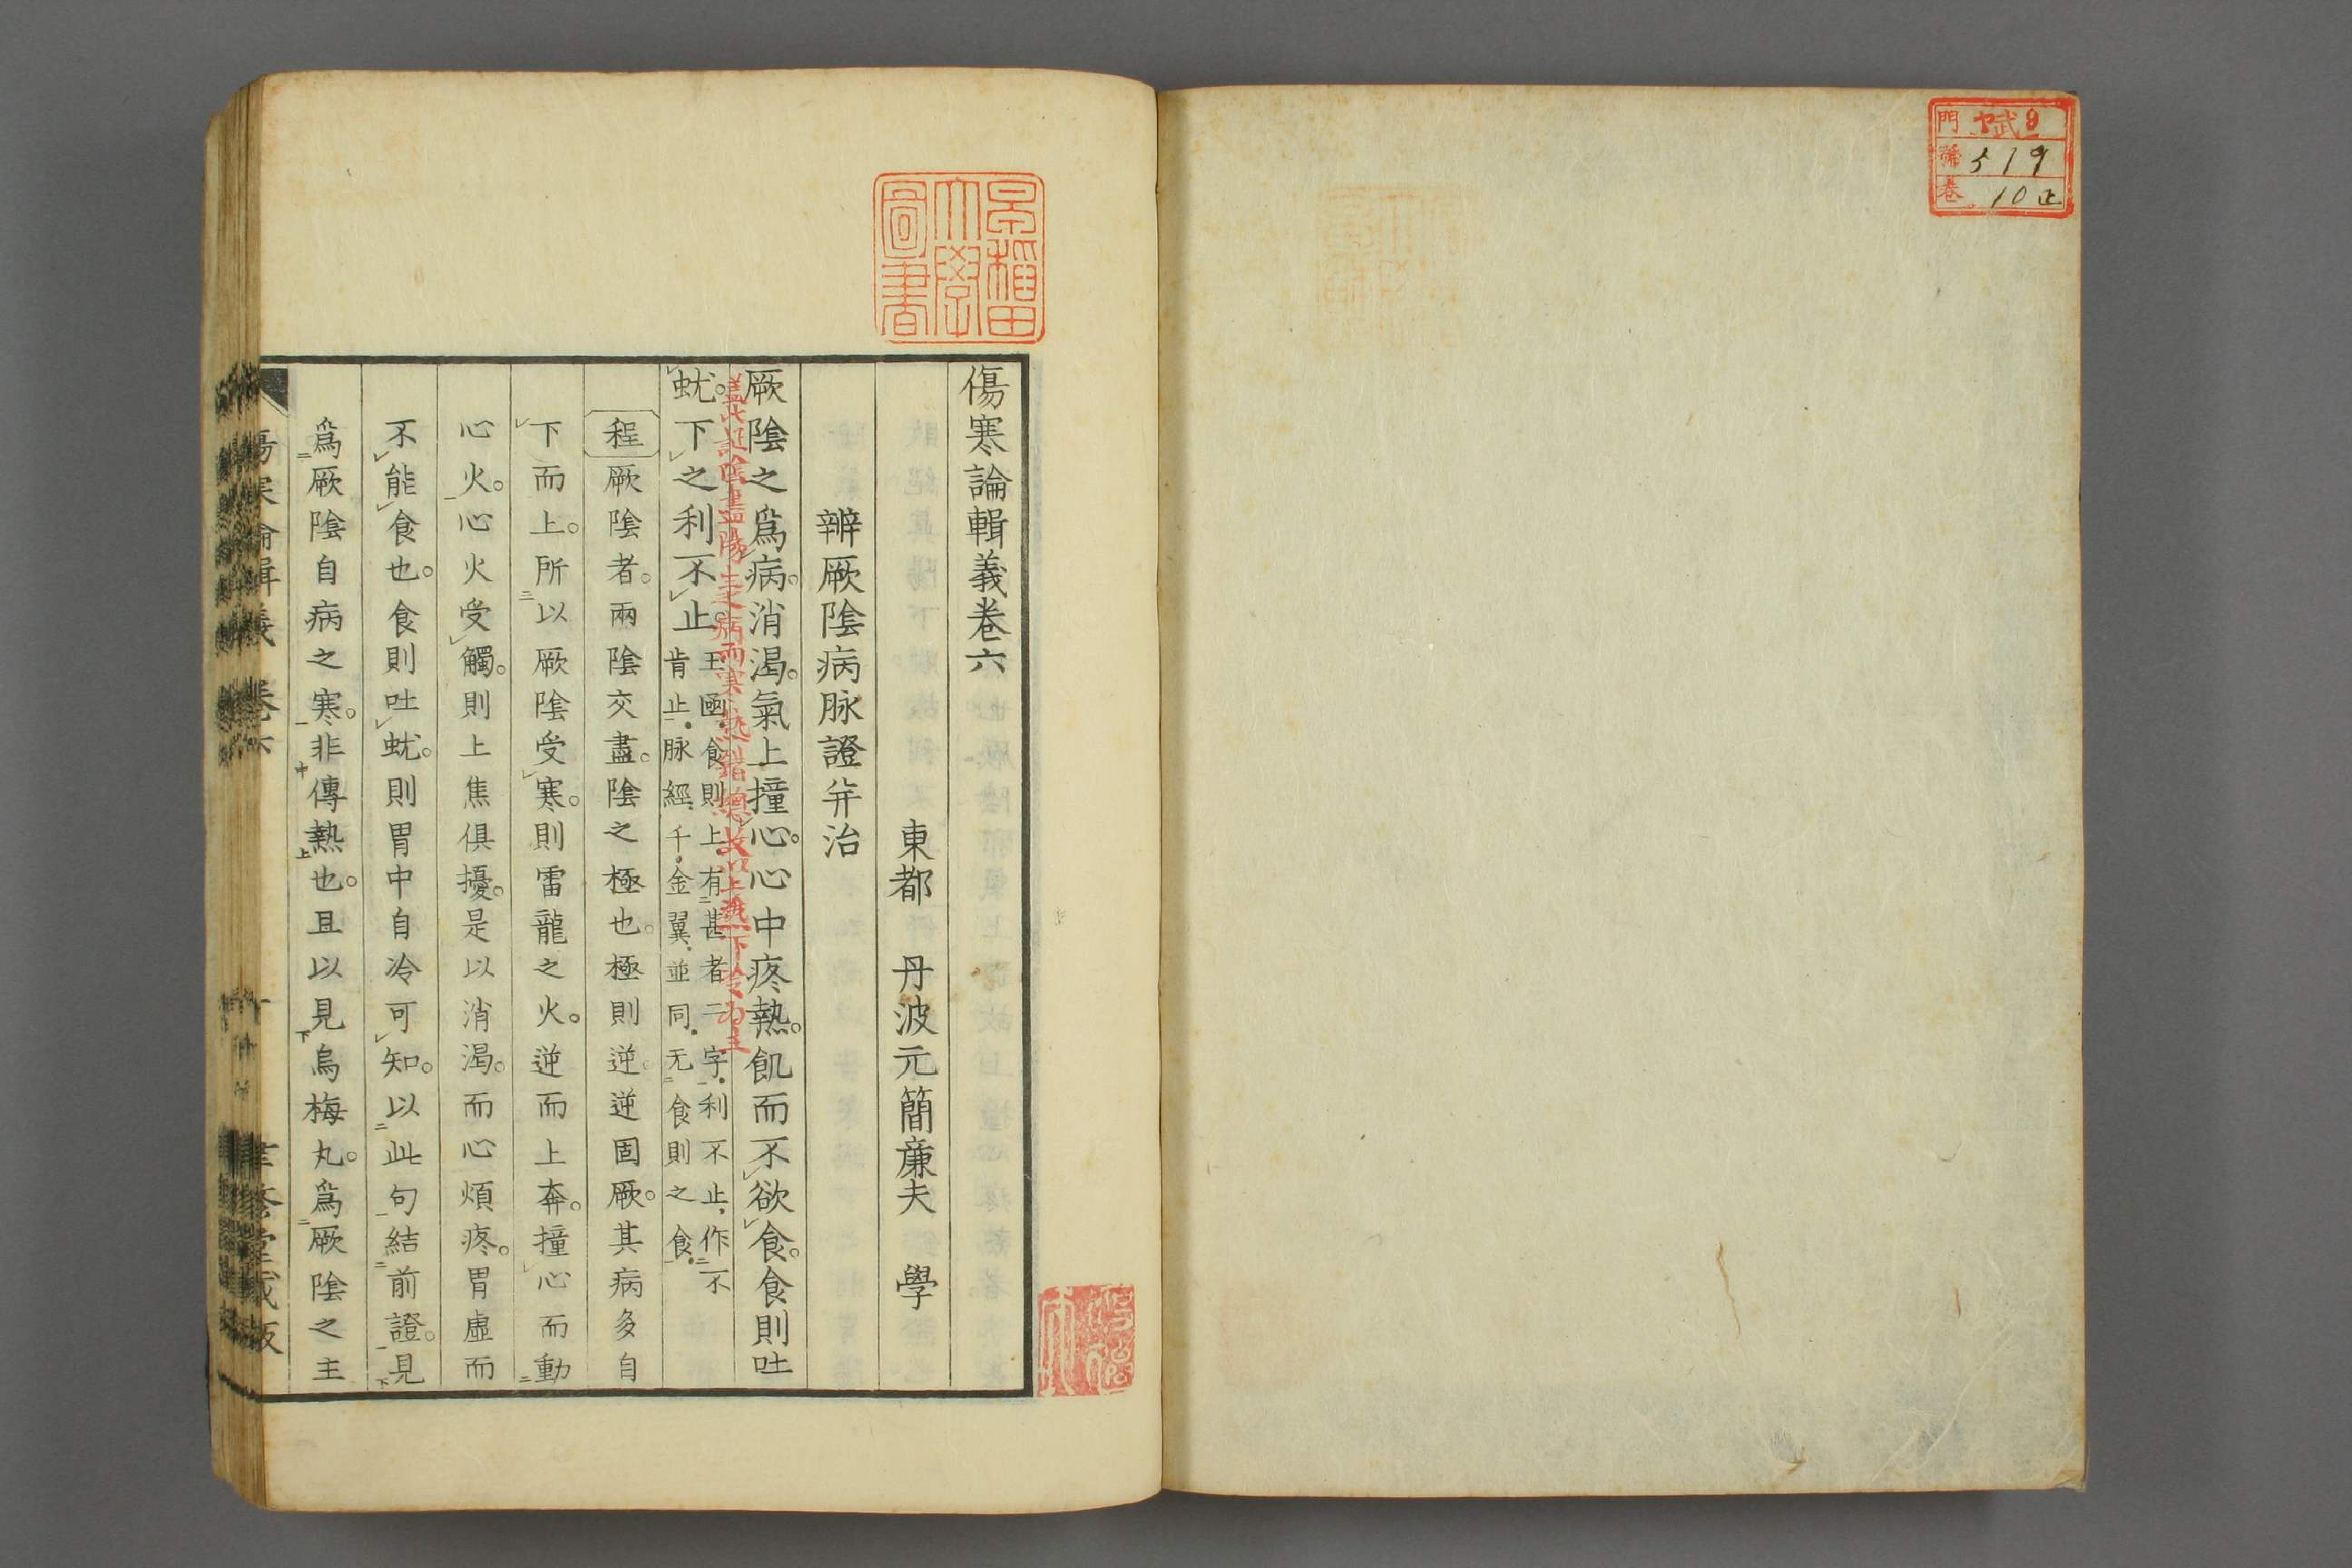 門 ヤ武9
號 519
卷 10止
早稲田大學圖書
傷寒論輯義卷六
東都 丹波元簡廉夫 學
辨厥陰病脉證并治
厥陰之爲病。消渴。氣上撞心。心中疼熱。飢而不欲食。食則吐
蚘。下之利不止。王函食則上有甚者二字利不止作不
肯止脉經千金翼並同无食則之食
程厥陰者。兩陰交盡。陰之極也。極則逆。逆固厥。其病多自
下而上。所以厥陰受寒。則雷龍之火。逆而上奔。撞心而動
心火。心火受觸。則上焦俱擾。是以消渴。而心煩疼。胃虛而
不能食也。食則吐蚘。則胃中自冷可知。以此句結前證。見
爲厥陰自病之寒。非傳熱也。且以見烏梅丸。爲厥陰之主
傷寒論輯義 卷六
聿脩堂藏版